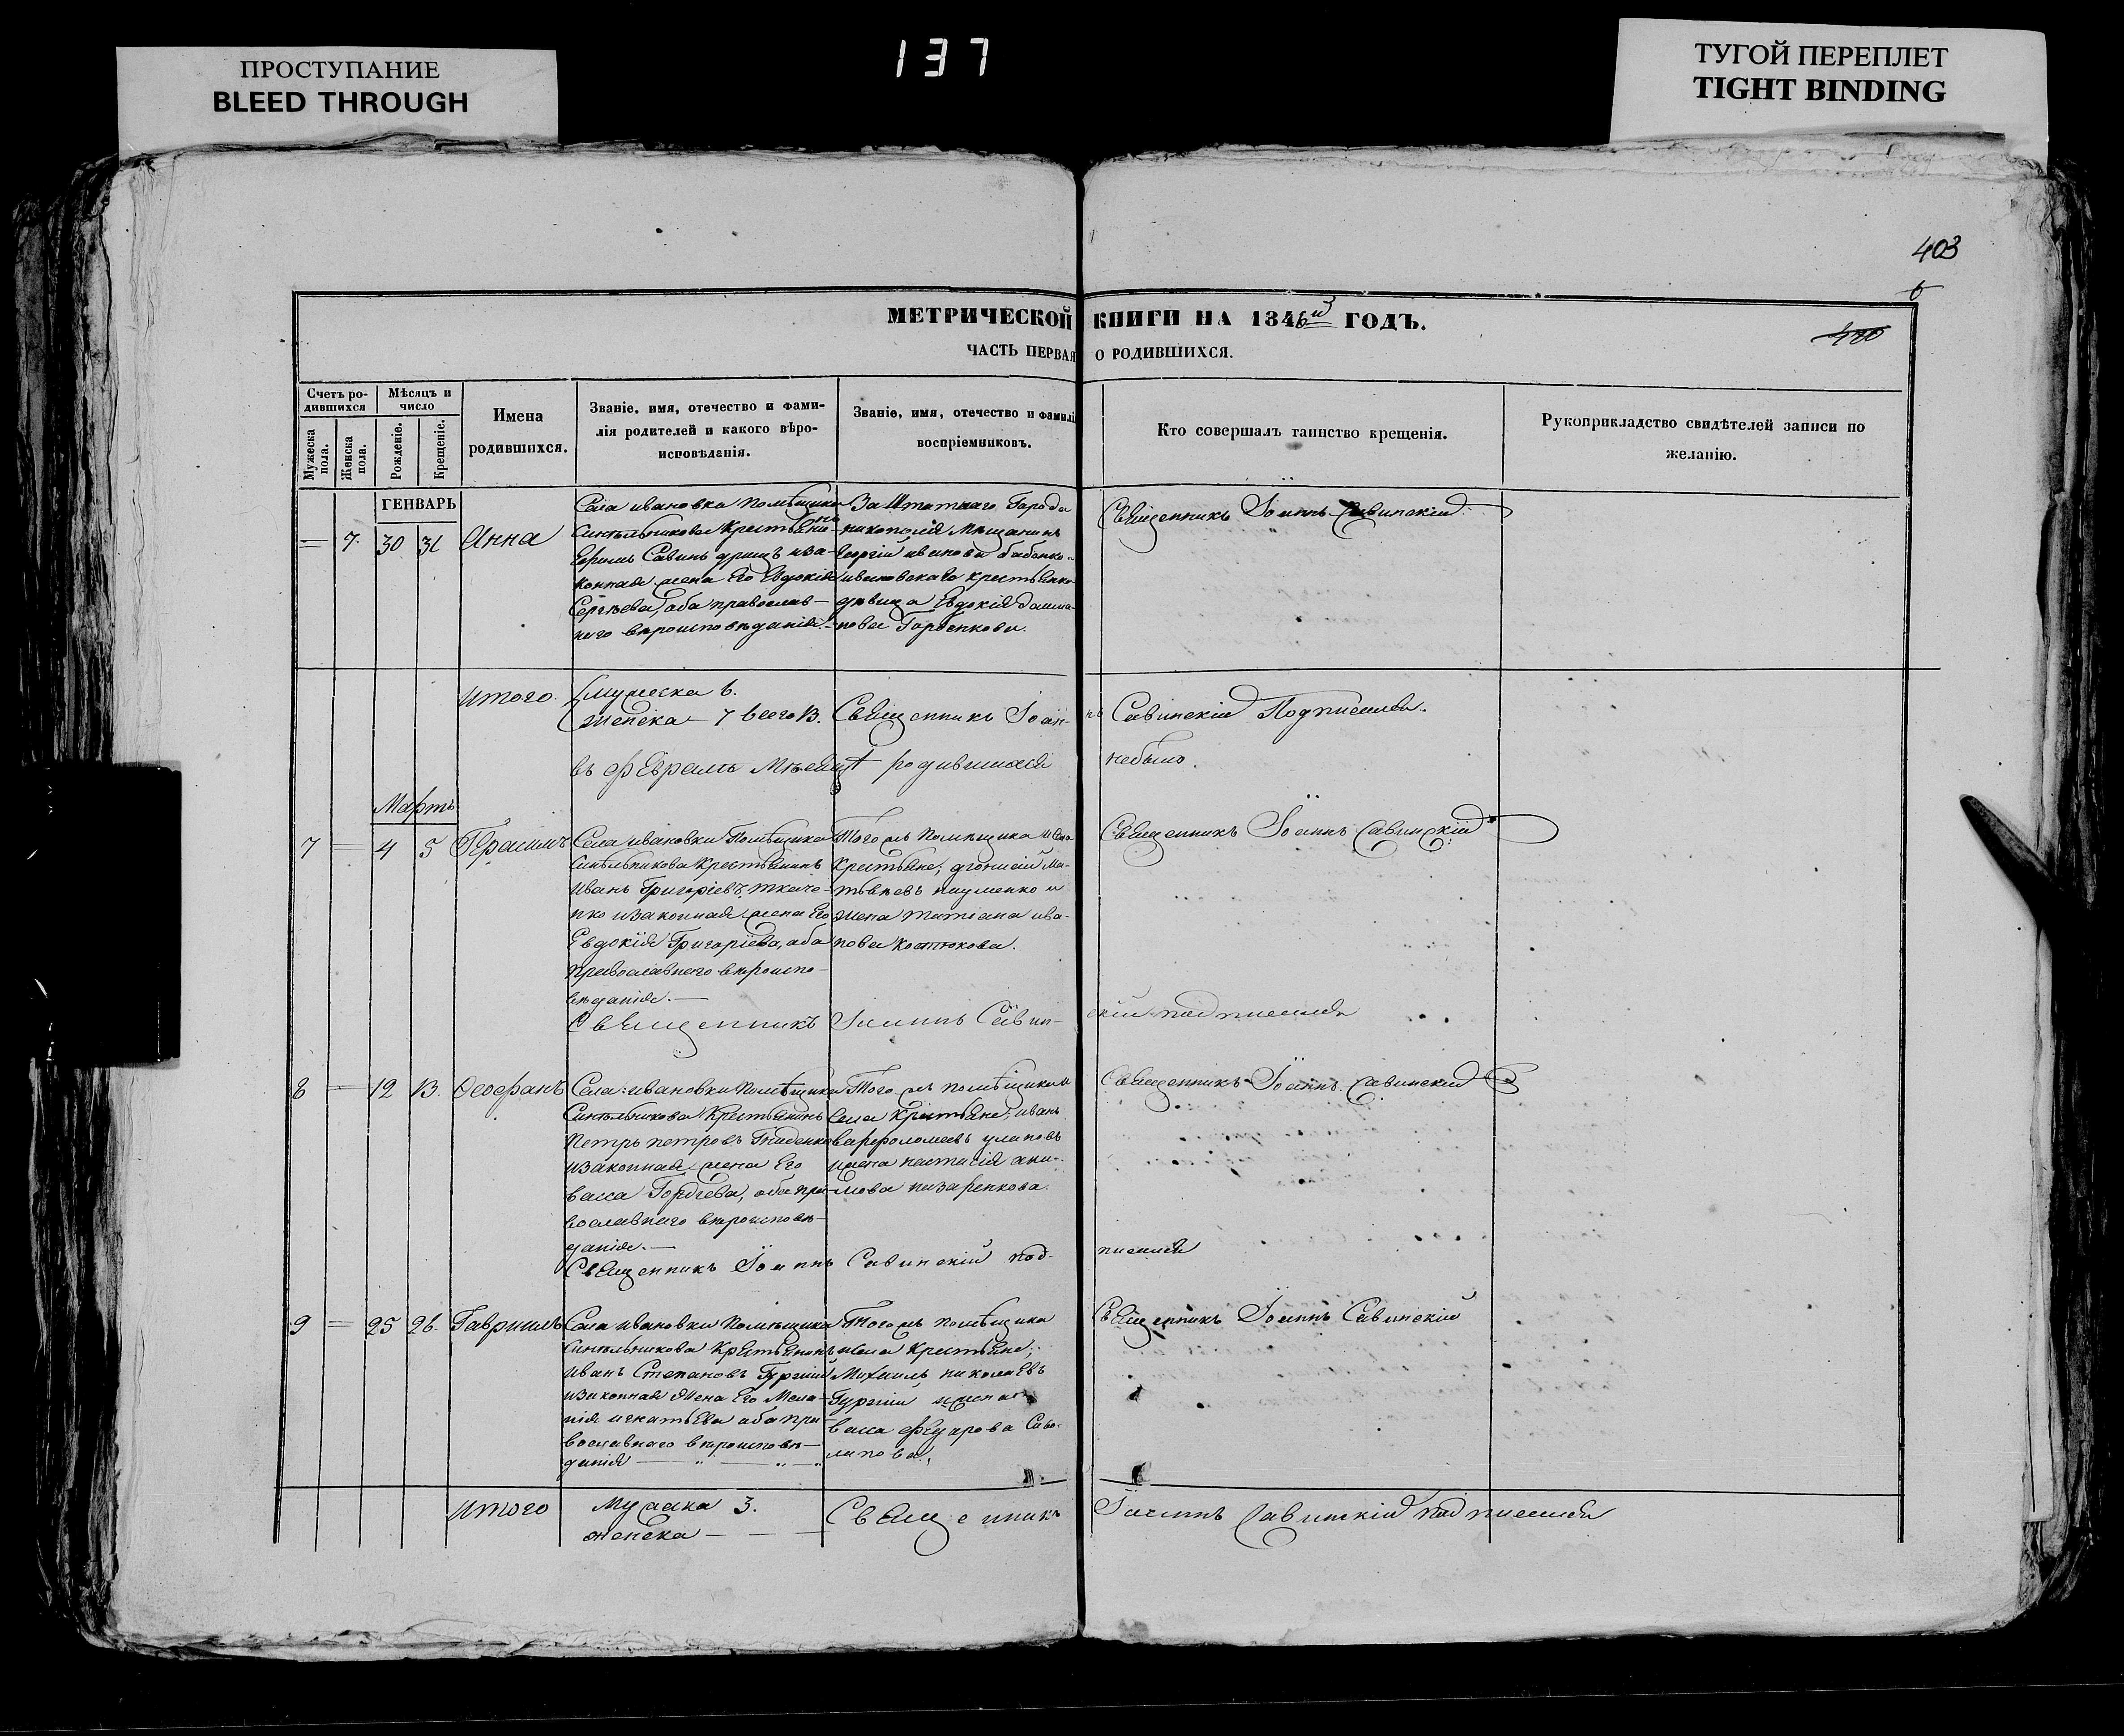 ПРОСТУПАНИЕ
BLEED THROUGH
137
ТУГОЙ ПЕРЕПЛЕТ
TIGHT BINDING
403
МЕТРИЧЕСКОЙ КНИГИ НА 1846й ГОДЪ.
ЧАСТЬ ПЕРВАЯ О РОДИВШИХСЯ.
Счетъ ро-
дившихся
Мужеска
пола.
Женска
пола.
Мѣсяцъ и
число
Рожденіе.
Крещеніе.
Имена
родившихся.
Званіе, имя, отечество и фами-
лія родителей и какого вѣро-
исповѣданія.
Званіе, имя, отечество и фамилія
воспріемниковъ.
Кто совершалъ таинство крещенія.
Рукоприкладство свидѣтелей записи по
желанію.
ГЕНВАРЬ
7. 30 31 Анна
Села ивановка помѣщика
Синѣльникова Крестьянинъ
Ефимъ Савинъ иза-
конная жена Его Евдокія
Сергѣева, оба православ-
наго вѣроисповѣданія.
За Штатнаго Города
никополя Мѣщанинъ
Георгій ивановъ бабенко
ивановскаго крестьянина
дѣвица Евдокія
нова Горбенкова.
Священникъ Іоаннъ Савинскій
итого
мужеска 6.
женска — 7 всего 13.
Священникъ Іоаннъ Савинскій Подписался.
въ Февралѣ Мѣсяцѣ родившихся небыло.
Мартъ
7 4 5 Герасимъ
Села ивановки Помѣщика
Синѣльникова Крестьянинъ
иванъ Григоріевъ ткаче-
нко изаконная жена Его
Евдокія Григоріева, оба
Православнаго вѣроиспо-
вѣданія.
Того жъ помѣщика и села
Крестьяне, Ма-
твѣевъ науменко и
жена татіана ива-
нова Костюкова.
Священникъ Іоаннъ Савинскій
Священникъ Іоаннъ Савинскій подписался
8 12 13. Ѳеофанъ
Села ивановки Помѣщика
Синѣльникова Крестьянинъ
Петръ петровъ Гниденко
изаконная жена Его
васса Гордѣева, оба пра-
вославнаго вѣроисповѣ-
данія.
Того жъ помѣщика и
села Крестьяне, иванъ
варфоломѣевъ улановъ
ижена настасія аки-
мова
Священникъ Іоаннъ Савинскій
Священникъ Іоаннъ Савинскій подписался
9 25 26. Гавріилъ
Села ивановки Помѣщика
Синѣльникова Крестьянинъ
иванъ Степановъ Гургій
изаконная жена Его Мела-
нія игнатьева оба пра-
вославнаго вѣроисповѣ-
данія
Того жъ помѣщика
исела Крестьяне,
Михаилъ николаевъ
Гургій ижена
васса Федорова
Священникъ Іоаннъ Савинскій
итого
Мужска 3.
женска —
Священникъ Іоаннъ Савинскій подписался